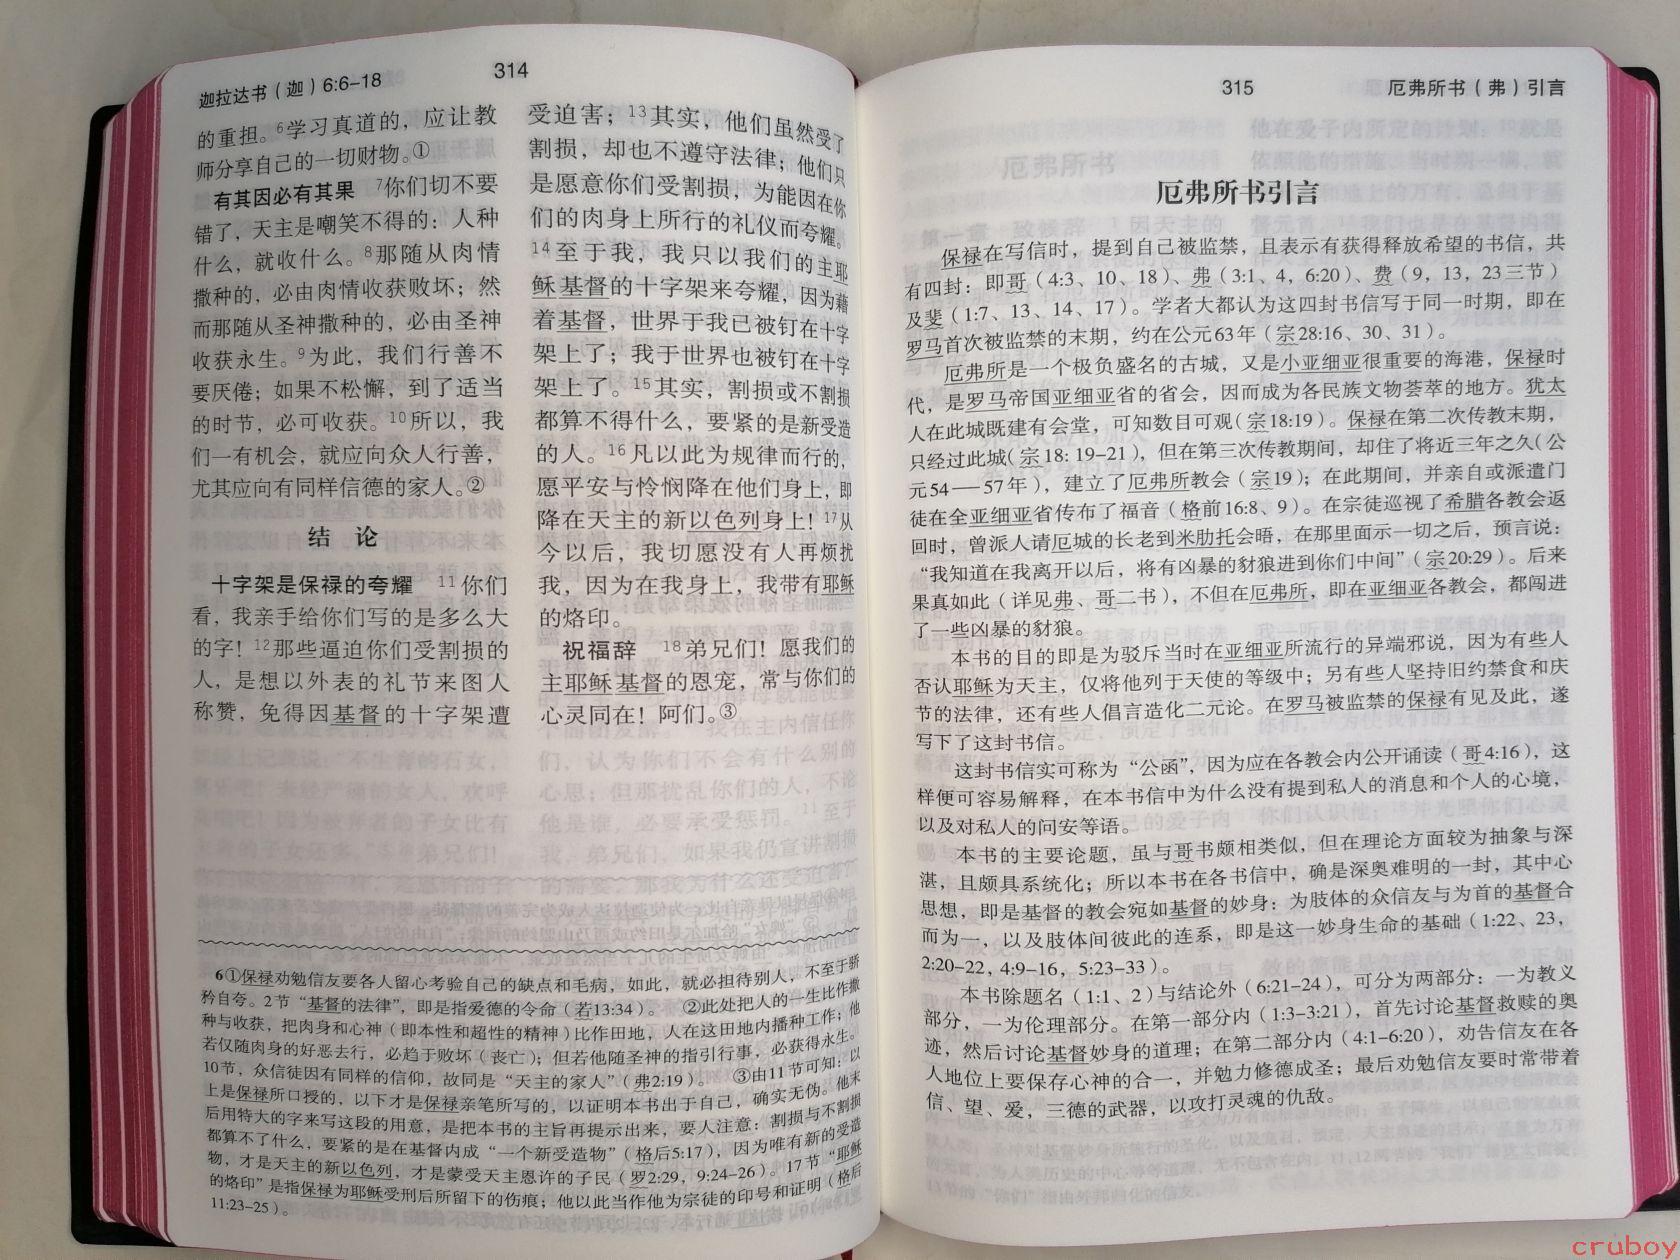 迦拉达书（迦）6:6–18
314
的重担。6学习真道的，应让教
师分享自己的一切财物。①
有其因必有其果 7你们切不要
错了，天主是嘲笑不得的：人种
什么，就收什么。8那随从肉情
撒种的，必由肉情收获败坏；然
而那随从圣神撒种的，必由圣神
收获永生。9为此，我们行善不
要厌倦；如果不松懈，到了适当
的时节，必可收获。10所以，我
们一有机会，就应向众人行善，
尤其应向有同样信德的家人。②
结 论
十字架是保禄的夸耀 11你们
看，我亲手给你们写的是多么大
的字！12那些逼迫你们受割损的
人，是想以外表的礼节来图人
称赞，免得因基督的十字架遭
受迫害；13其实，他们虽然受了
割损，却也不遵守法律；他们只
是愿意你们受割损，为能因在你
们的肉身上所行的礼仪而夸耀。
14至于我，我只以我们的主耶
稣基督的十字架来夸耀，因为藉
着基督，世界于我已被钉在十字
架上了；我于世界也被钉在十字
架上了。15其实，割损或不割损
都算不得什么，要紧的是新受造
的人。16凡以此为规律而行的，
愿平安与怜悯降在他们身上，即
降在天主的新以色列身上！17从
今以后，我切愿没有人再烦扰
我，因为在我身上，我带有耶稣
的烙印。
祝福辞 18弟兄们！愿我们的
主耶稣基督的恩宠，常与你们的
心灵同在！阿们。③
6①保禄劝勉信友要各人留心考验自己的缺点和毛病，如此，就必担待别人，不至于骄
矜自夸。2节“基督的法律”，即是指爱德的令命（若13:34）。 ②此处把人的一生比作撒
种与收获，把肉身和心神（即本性和超性的精神）比作田地，人在这田地内播种工作；他
若仅随肉身的好恶去行，必趋于败坏（丧亡）；但若他随圣神的指引行事，必获得永生。
10节，众信徒因有同样的信仰，故同是“天主的家人”（弗2:19）。 ③由11节可知：以
上是保禄所口授的，以下才是保禄亲笔所写的，以证明本书出于自己，确实无伪。他末
后用特大的字来写这段的用意，是把本书的主旨再提示出来，要人注意：割损与不割损
都算不了什么，要紧的是在基督内成“一个新受造物”（格后5:17），因为唯有新的受造
物，才是天主的新以色列，才是蒙受天主恩许的子民（罗2:29，9:24–26）。17节“耶稣
的烙印”是指保禄为耶稣受刑后所留下的伤痕；他以此当作他为宗徒的印号和证明（格后
11:23–25）。
315
厄弗所书（弗）引言
厄弗所书引言
保禄在写信时，提到自己被监禁，且表示有获得释放希望的书信，共
有四封：即哥（4:3、10、18）、弗（3:1、4，6:20）、费（9，13，23三节）
及斐（1:7、13、14、17）。学者大都认为这四封书信写于同一时期，即在
罗马首次被监禁的末期，约在公元63年（宗28:16、30、31）。
厄弗所是一个极负盛名的古城，又是小亚细亚很重要的海港，保禄时
代，是罗马帝国亚细亚省的省会，因而成为各民族文物荟萃的地方。犹太
人在此城既建有会堂，可知数目可观（宗18:19）。保禄在第二次传教末期，
只经过此城（宗18: 19–21），但在第三次传教期间，却住了将近三年之久（公
元54——57年），建立了厄弗所教会（宗19）；在此期间，并亲自或派遣门
徒在全亚细亚省传布了福音（格前16:8、9）。在宗徒巡视了希腊各教会返
回时，曾派人请厄城的长老到米肋托会晤，在那里面示一切之后，预言说：
“我知道在我离开以后，将有凶暴的豺狼进到你们中间”（宗20:29）。后来
果真如此（详见弗、哥二书），不但在厄弗所，即在亚细亚各教会，都闯进
了一些凶暴的豺狼。
本书的目的即是为驳斥当时在亚细亚所流行的异端邪说，因为有些人
否认耶稣为天主，仅将他列于天使的等级中；另有些人坚持旧约禁食和庆
节的法律，还有些人倡言造化二元论。在罗马被监禁的保禄有见及此，遂
写下了这封书信。
这封书信实可称为“公函”，因为应在各教会内公开诵读（哥4:16），这
样便可容易解释，在本书信中为什么没有提到私人的消息和个人的心境，
以及对私人的问安等语。
本书的主要论题，虽与哥书颇相类似，但在理论方面较为抽象与深
湛，且颇具系统化；所以本书在各书信中，确是深奥难明的一封，其中心
思想，即是基督的教会宛如基督的妙身：为肢体的众信友与为首的基督合
而为一，以及肢体间彼此的连系，即是这一妙身生命的基础（1:22、23，
2:20–22，4:9–16，5:23–33）。
本书除题名（1:1、2）与结论外（6:21–24），可分为两部分：一为教义
部分，一为伦理部分。在第一部分内（1:3–3:21），首先讨论基督救赎的奥
迹，然后讨论基督妙身的道理；在第二部分内（4:1–6:20），劝告信友在各
人地位上要保存心神的合一，并勉力修德成圣；最后劝勉信友要时常带着
信、望、爱，三德的武器，以攻打灵魂的仇敌。
cruboy